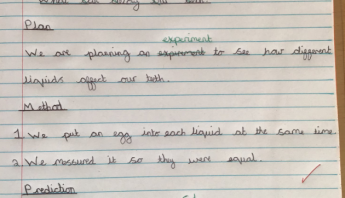 Plan
experiment
We are planing an experement to see how different
liquids affect our teeth.
Method
1 We put an egg into each liquid at the same time.
2 We messured it so they were equal.
Prediction